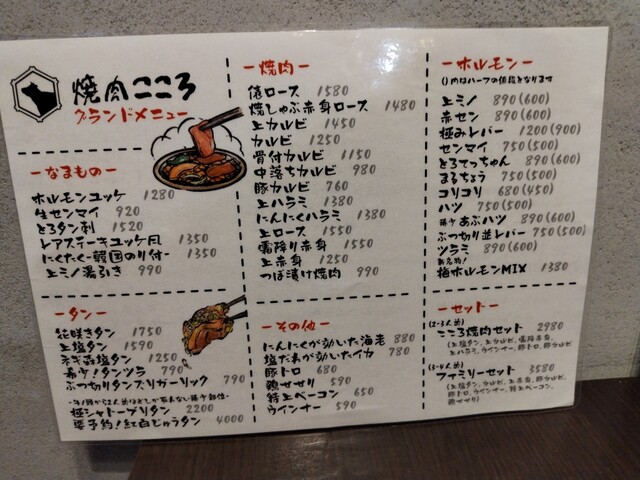 焼肉こころ
グランドメニュー
ーなまものー
ホルモンユッケ 1280
生センマイ 920
とろタン刺 1520
レアステーキユッケ風 1350
にくたく-韓国のり付- 1350
上ミノ湯引き 990
ータンー
花咲きタン 1750
上塩タン 1590
ネギ森塩タン 1250
希少!タンツラ 790
ぶつ切りタンズリガーリック 790
極シャトーブリタン 2200
要予約!紅白じゅうタン 4000
ー焼肉ー
俵ロース 1580
焼しゃぶ赤身ロース 1480
上カルビ 1450
カルビ 1250
骨付カルビ 1150
中落ちカルビ 980
豚カルビ 760
上ハラミ 1380
にんにくハラミ 1380
上ロース 1550
霜降り赤身 1550
上赤身 1250
つぼ漬け焼肉 990
ーその他ー
にんにくが効いた海老 880
塩だれが効いたイカ 780
豚トロ 680
鶏せせり 590
特上ベーコン 650
ウインナー 590
ーホルモンー
()内はハーフの値段となります
上ミノ 890(600)
赤セン 890(600)
極みレバー 1200(900)
センマイ 750(500)
とろてっちゃん 890(600)
まるちょう 750(500)
コリコリ 680(450)
ハツ 750(500)
希少 あぶハツ 890(600)
ぶつ切り並レバー 750(500)
ツラミ 890(600)
新名物!
梅ホルモンMIX 1380
ーセットー
(2-3人前)
こころ焼肉セット 2980
(上塩タン、上カルビ、霜降赤身、
上ハラミ、ウインナー、豚トロ、豚カルビ)
(3-4人前)
ファミリーセット 3580
(上塩タン、カルビ、上赤身、豚カルビ、
豚トロ、ウインナー、特上ベーコン、
鶏せせり)